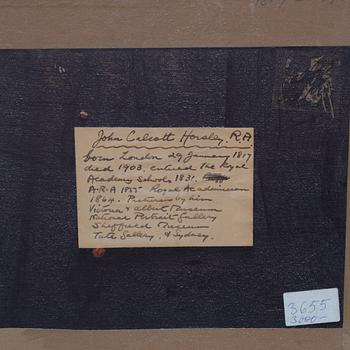 John Calcott Horsley, R.A.
born London 29 January 1817
died 1903, entered the Royal
Academy Schools 1831.
A.R.A 1855 Royal Academician
1864. Pictures by him
Victoria & Albert Museum
National Portrait Gallery
Sheffield Museum
Tate Gallery, & Sydney.
3655
3000-